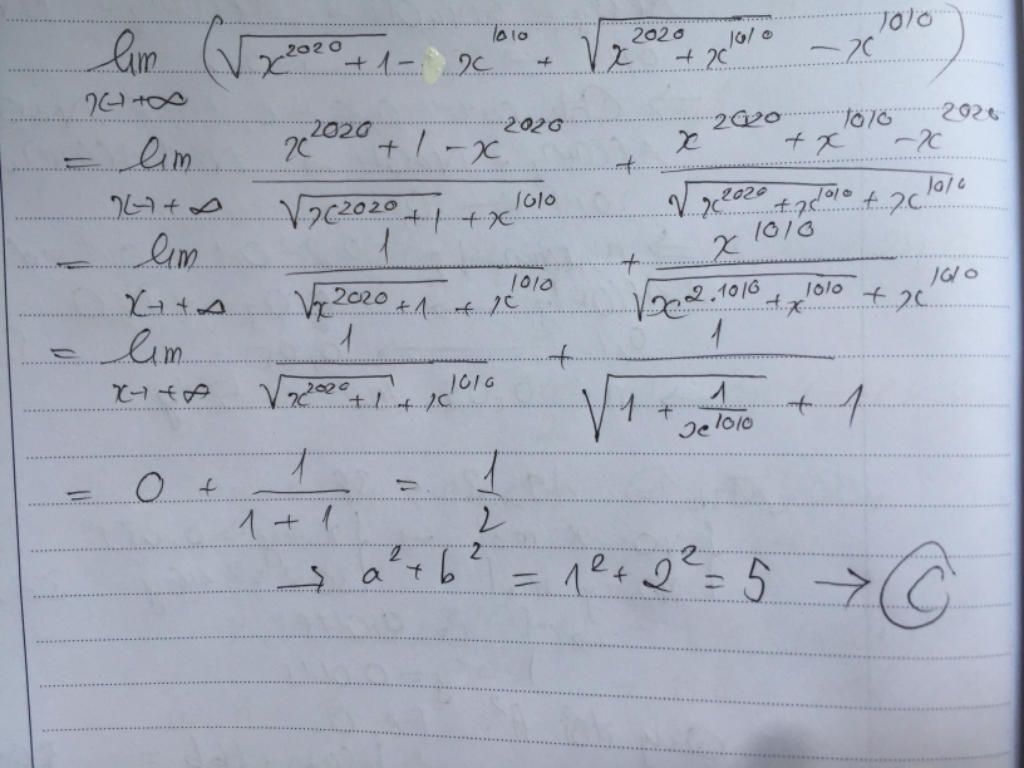 lim x→+∞ (√(x^2020 + 1) - x^1010 + √(x^2020 + x^1010) - x^1010)
= lim x→+∞ (x^2020 + 1 - x^2020)/(√(x^2020 + 1) + x^1010) + (x^2020 + x^1010 - x^2020)/(√(x^2020 + x^1010) + x^1010)
= lim x→+∞ 1/(√(x^2020 + 1) + x^1010) + x^1010/(√(x^2.1010 + x^1010) + x^1010)
= lim x→+∞ 1/(√(x^2020 + 1) + x^1010) + 1/(√(1 + 1/x^1010) + 1)
= 0 + 1/(1 + 1) = 1/2
→ a² + b² = 1² + 2² = 5 → C